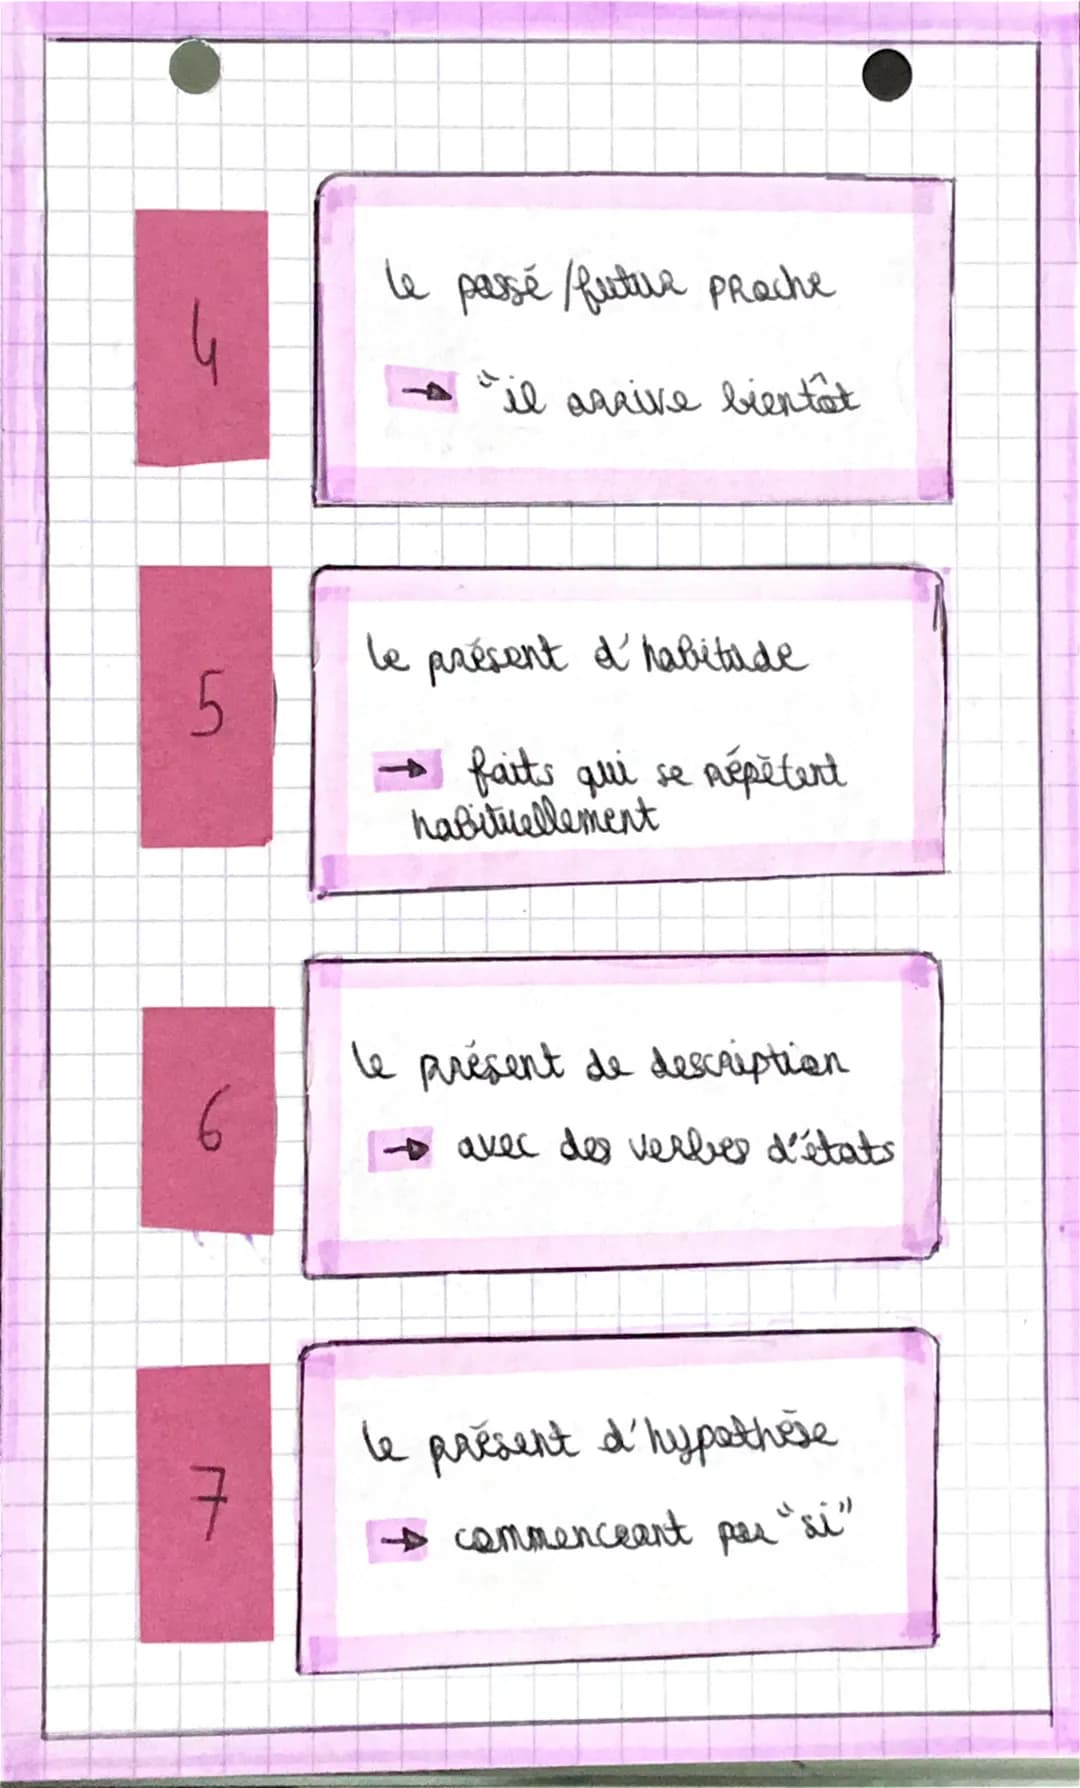 4
le passé / futur proche
→ "il arrive bientôt
5
le présent d'habitude
→ faits qui se répètent
habituellement
6
le présent de description
→ avec des verbes d'états
7
le présent d'hypothèse
→ commenceant par "si"